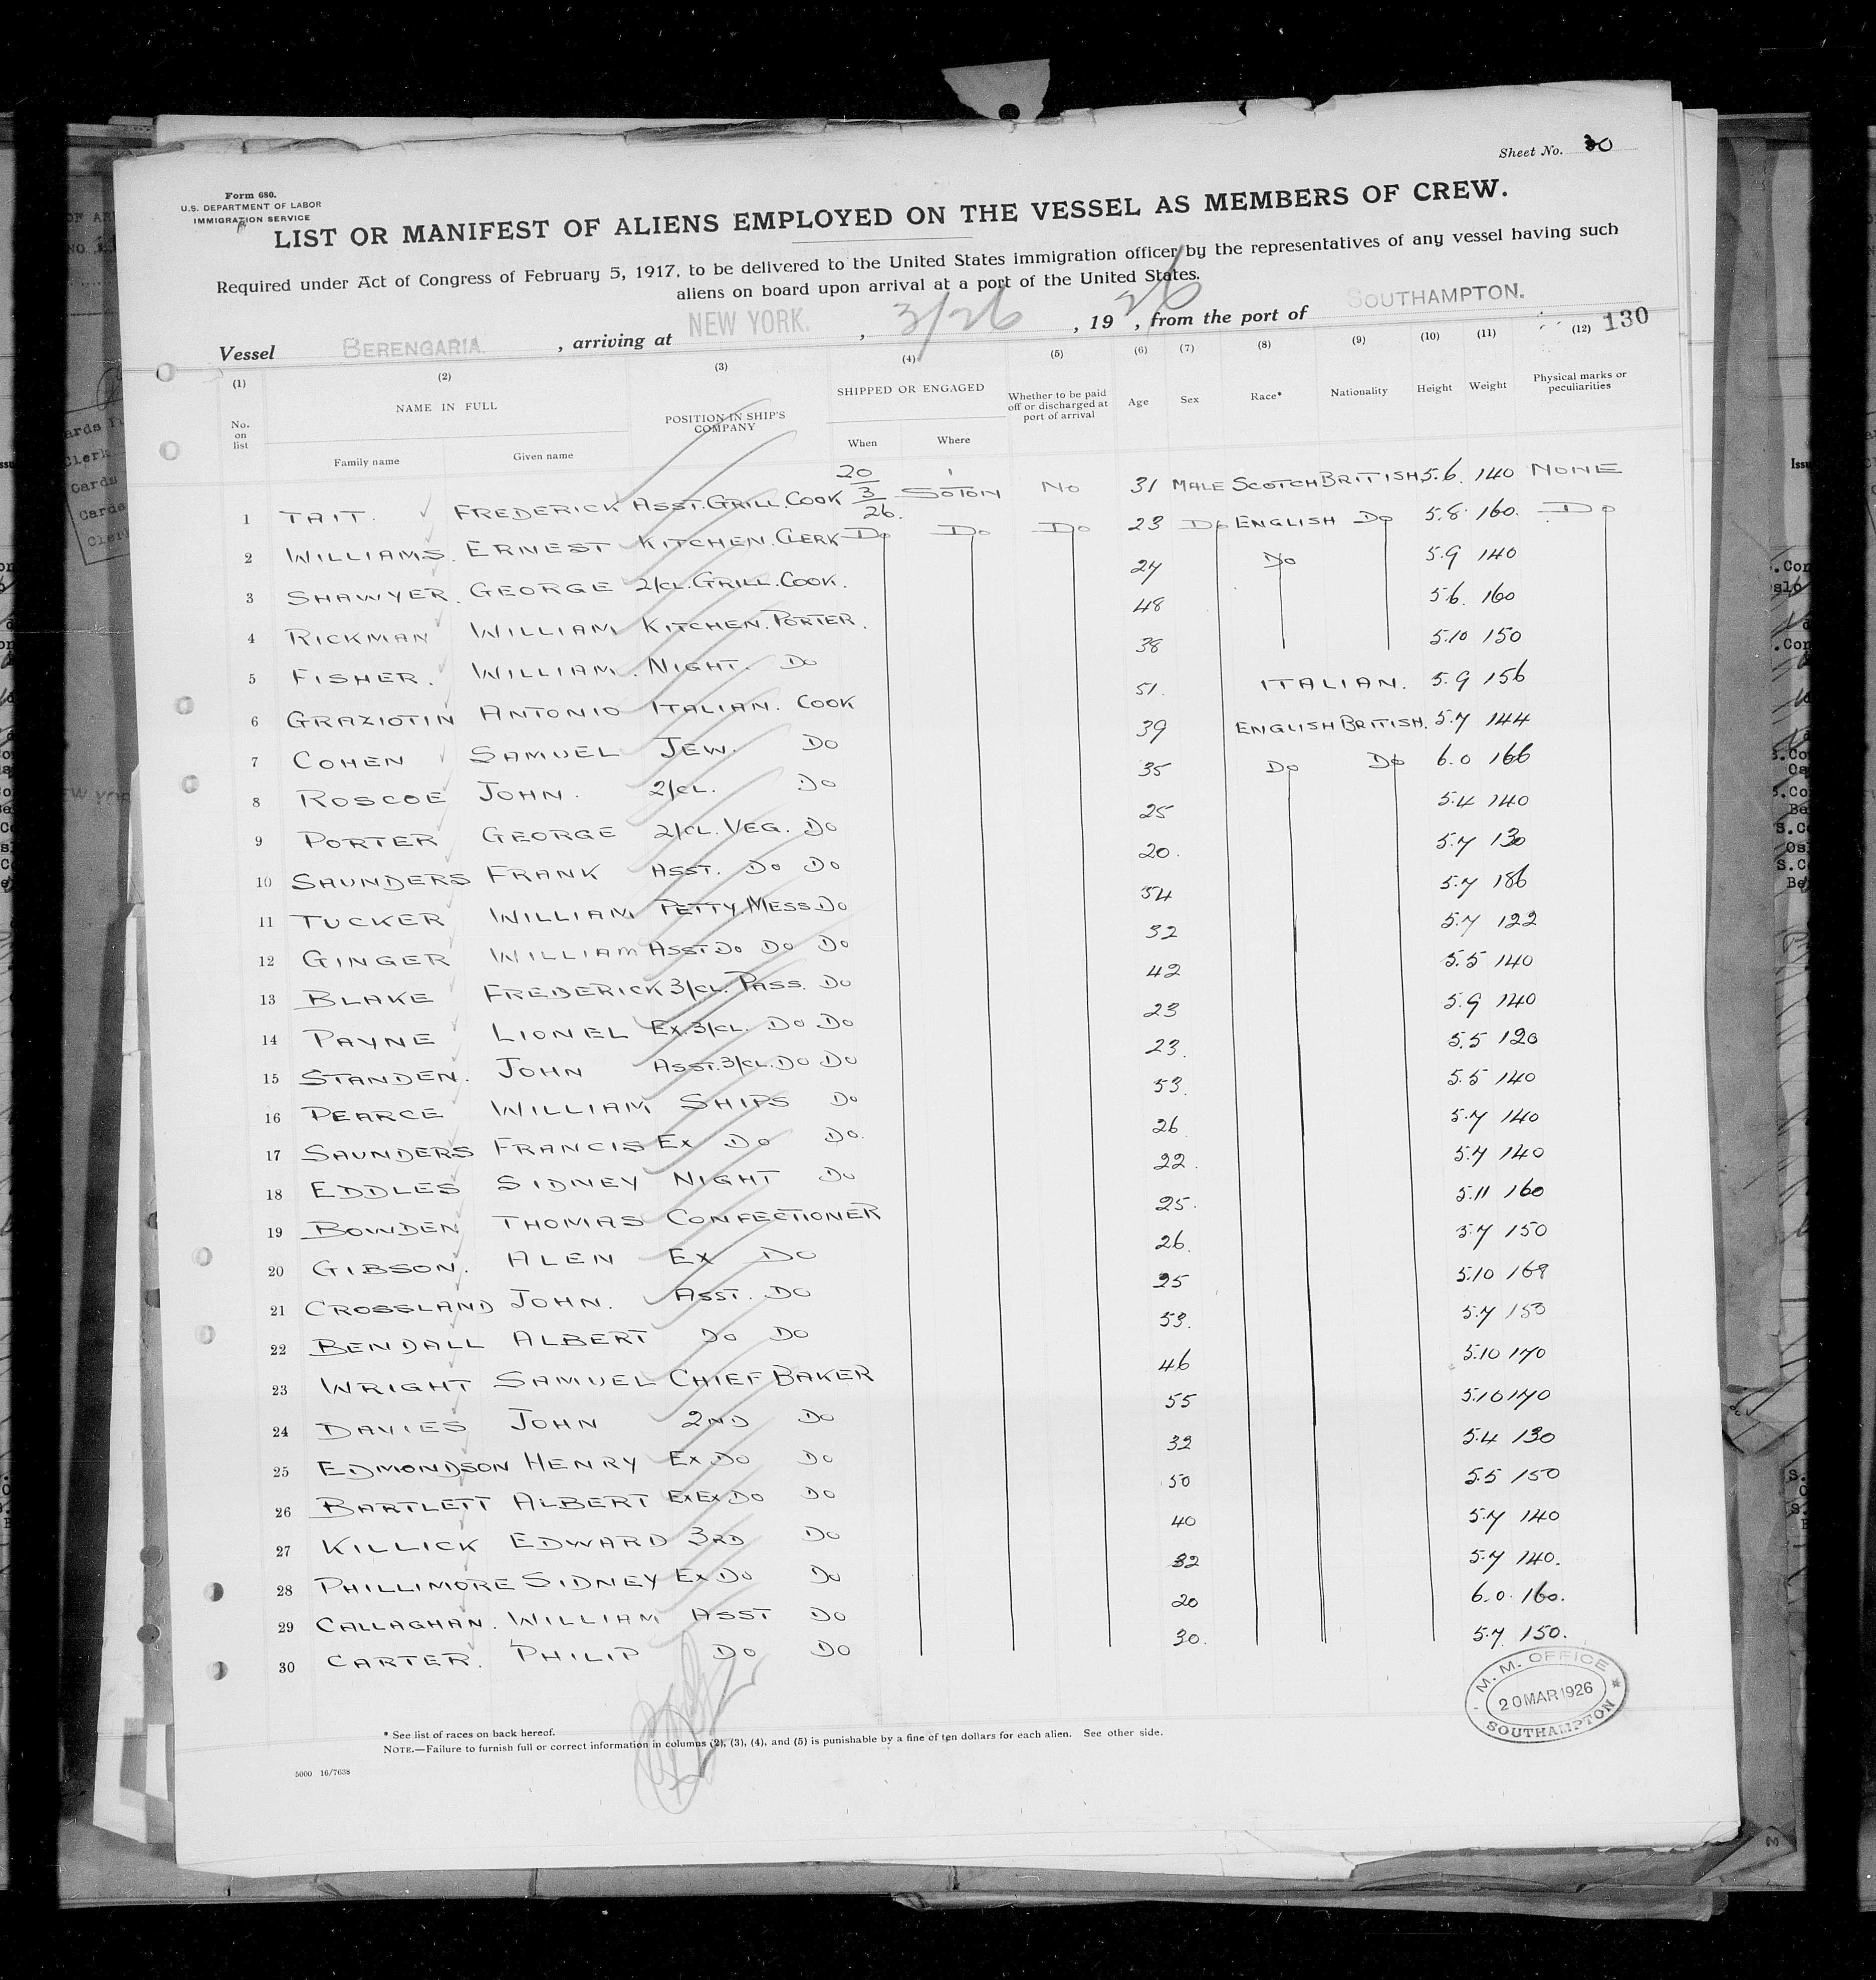 Sheet No. 30
Form 680.
U.S. DEPARTMENT OF LABOR
IMMIGRATION SERVICE
LIST OR MANIFEST OF ALIENS EMPLOYED ON THE VESSEL AS MEMBERS OF CREW.
Required under Act of Congress of February 5, 1917, to be delivered to the United States immigration officer by the representatives of any vessel having such
aliens on board upon arrival at a port of the United States.
Vessel BERENGARIA. , arriving at NEW YORK. , 3/26 , 1926 , from the port of SOUTHAMPTON.
130
(1) (2) (3) (4) (5) (6) (7) (8) (9) (10) (11) (12)
No. on list NAME IN FULL Family name Given name POSITION IN SHIP'S COMPANY SHIPPED OR ENGAGED When Where Whether to be paid off or discharged at port of arrival Age Sex Race* Nationality Height Weight Physical marks or peculiarities
1 TAIT. FREDERICK ASST. GRILL. COOK 20/3/26. SOTON NO 31 MALE SCOTCH BRITISH 5.6. 140 NONE
2 WILLIAMS. ERNEST KITCHEN. CLERK DO DO DO 23 DO ENGLISH DO 5.8. 160. DO
3 SHAWYER. GEORGE 2/CL. GRILL. COOK. 24 DO 5.9 140
4 RICKMAN WILLIAM KITCHEN. PORTER. 48 5.6. 160
5 FISHER. WILLIAM. NIGHT. DO 38 5.10 150
6 GRAZIOTIN ANTONIO ITALIAN. COOK 51. ITALIAN. 5.9 156
7 COHEN SAMUEL JEW. DO 39 ENGLISH BRITISH. 5.7 144
8 ROSCOE JOHN. 2/CL. DO 35 DO DO 6.0 166
9 PORTER GEORGE 2/CL. VEG. DO 25 5.4 140
10 SAUNDERS FRANK ASST. DO DO 20. 5.7 130
11 TUCKER WILLIAM PETTY. MESS DO 54 5.7 186
12 GINGER WILLIAM ASST DO DO DO 32 5.7 122
13 BLAKE FREDERICK 3/CL. PASS. DO 42 5.5 140
14 PAYNE LIONEL EX. 3/CL. DO DO 23 5.9 140
15 STANDEN. JOHN ASST. 3/CL. DO DO 23. 5.5 120
16 PEARCE WILLIAM SHIPS DO 53. 5.5 140
17 SAUNDERS FRANCIS EX DO DO. 26 5.7 140
18 EDDLES SIDNEY NIGHT DO 22. 5.7 140
19 BOWDEN THOMAS CONFECTIONER 25. 5.11 160
20 GIBSON. ALEN EX DO 26. 5.7 150
21 CROSSLAND JOHN. ASST. DO 25 5.10 168
22 BENDALL ALBERT DO DO 53. 5.7 153
23 WRIGHT SAMUEL CHIEF BAKER 46 5.10 170
24 DAVIES JOHN 2ND DO 55 5.10 170
25 EDMONDSON HENRY EX DO DO 32 5.4 130
26 BARTLETT ALBERT EX EX DO DO 50 5.5 150
27 KILLICK EDWARD 3RD DO 40 5.7 140
28 PHILLIMORE SIDNEY EX DO DO 32 5.7 140.
29 CALLAGHAN. WILLIAM ASST DO 20 6.0. 160.
30 CARTER. PHILIP DO DO 30. 5.7. 150.
M.M. OFFICE
20 MAR 1926
SOUTHAMPTON
* See list of races on back hereof.
NOTE.—Failure to furnish full or correct information in columns (2), (3), (4), and (5) is punishable by a fine of ten dollars for each alien. See other side.
5000 16/7638